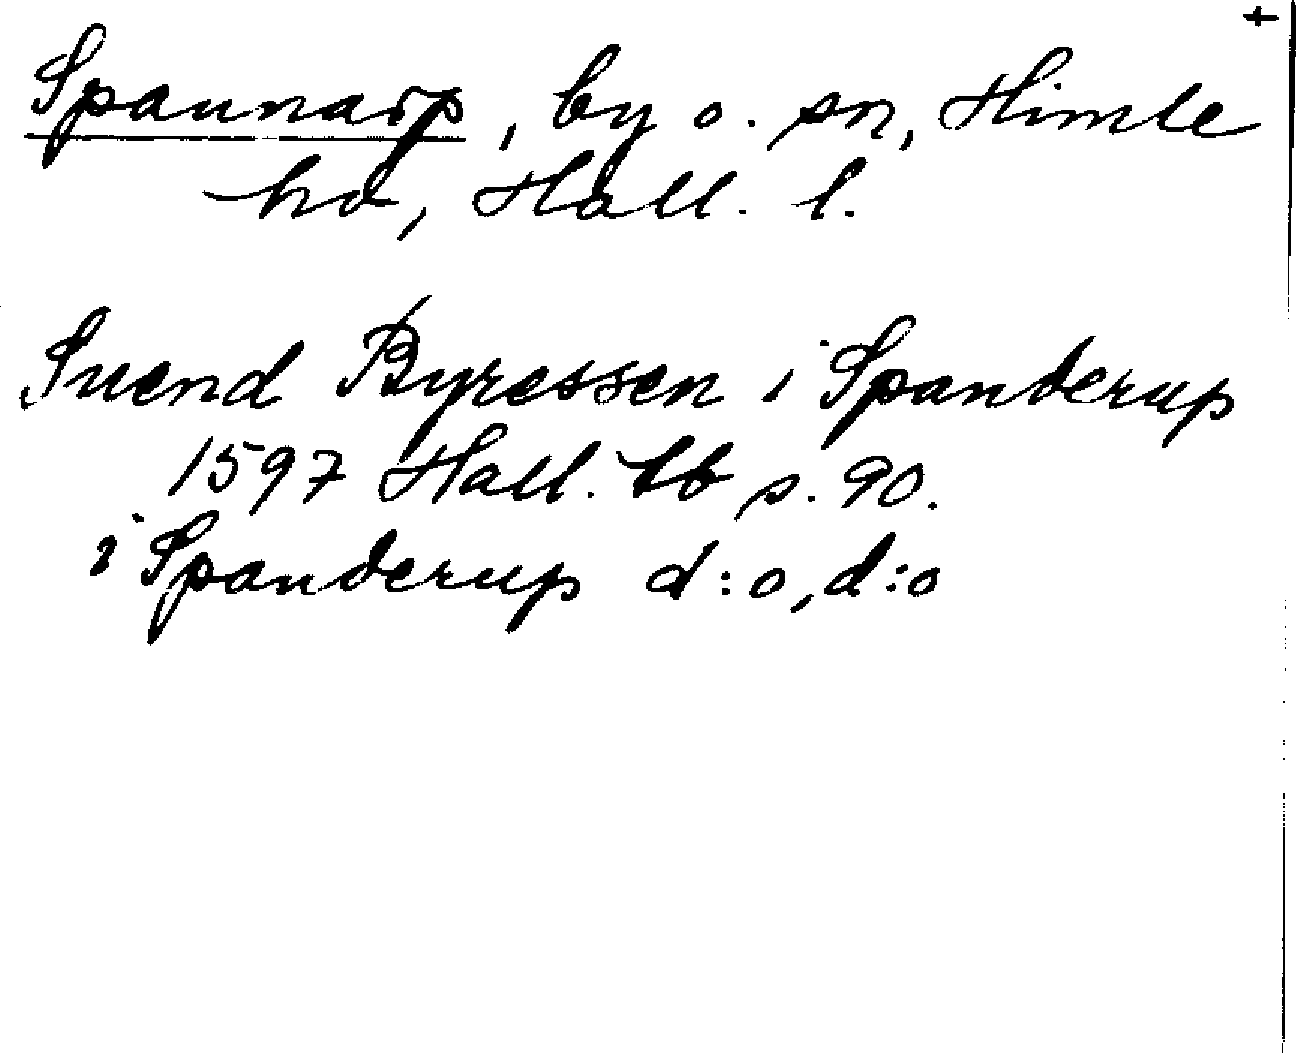 +
Spannarp, by o. sn, Himle
hd, Hall. l.
Svend Byressen i Spanderup
1597 Hall. lb s. 90.
i Spanderup d:o, d:o